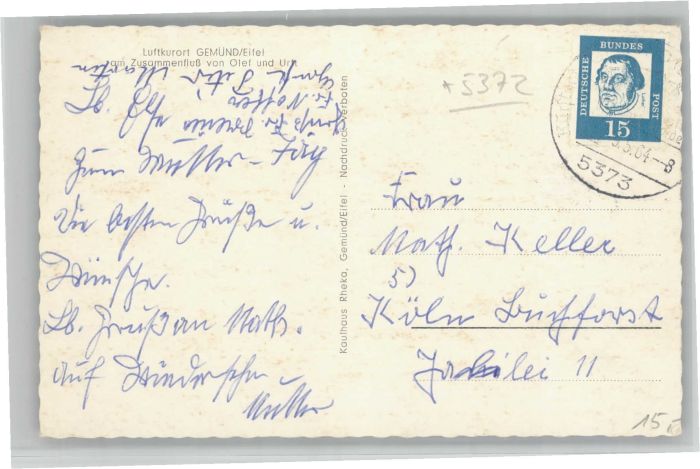 Luftkurort GEMÜND/Eifel
am Zusammenfluß von Olef und Urft
Lb. Else
zum Mutter-Tag
die besten Grüße u.
Wünsche.
Lb. Gruß an Math.
auf Wiedersehn
Mutter
Kaufhaus Rheka, Gemünd/Eifel - Nachdruck verboten
* 5372
DEUTSCHE BUNDES POST
15
5.64-8
5373
Frau
Math. Keller
5) Köln Buchforst
11
15,-